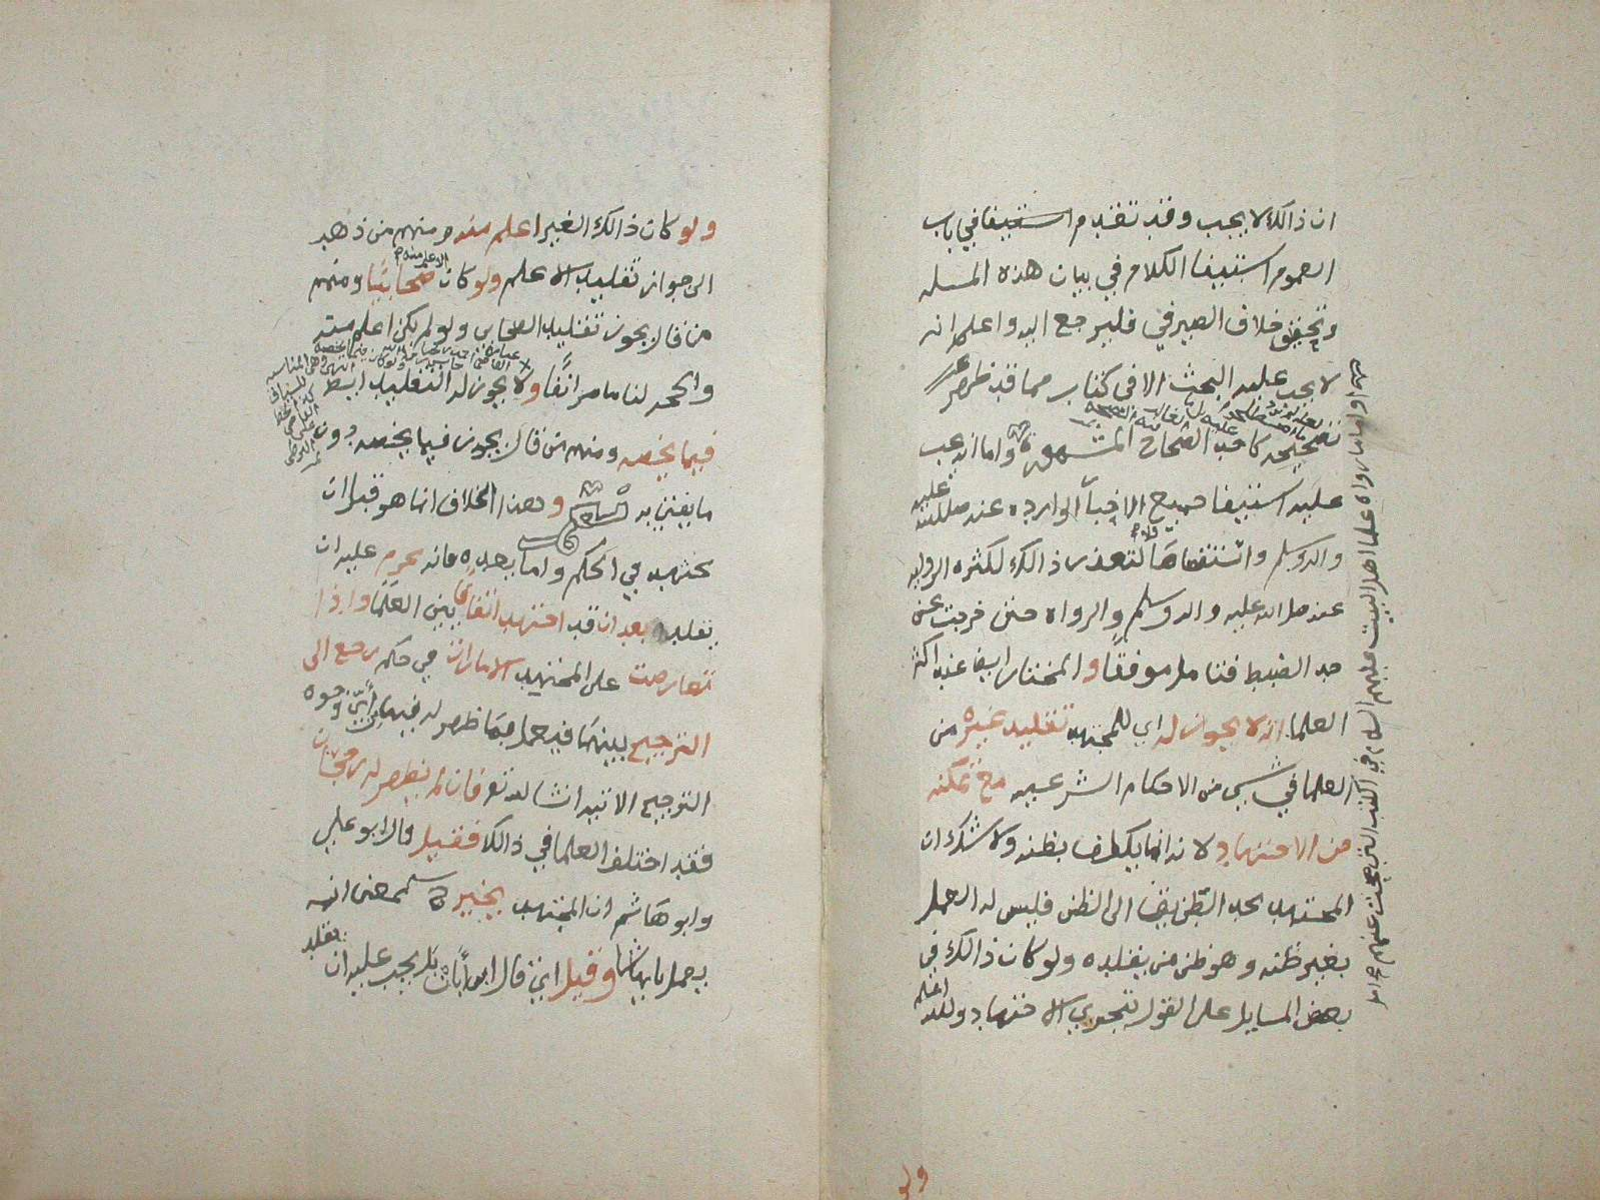 ان ذالك لا يجب وقد تقدم استيفا في باب
العموم استيفا الكلام في بيان هذه المسله
وتحقيق خلاف الصيرفي فليرجع اليه واعلم انه
لا يجب عليه البحث الا في كتاب مما قد ظهر
تصحيحه كاحد الصحاح المشهوره واما انه يجب
عليه استيفا جميع الاخبار الوارده عنه صلى الله عليه
واله وسلم واستقصاها فلا لتعذر ذالك لكثره الروايه
عنه صلى الله عليه واله وسلم والرواه حتى خرجت عن
حد الضبط فتامل موفقا والمختار ايضا عند اكثر
العلما انه لا يجوز له اي للمجتهد تقليد غيره من
العلما في شي من الاحكام الشرعيه مع تمكنه
من الاجتهاد لانه انما يكلف بظنه ولا شك ان
المجتهد يجد الطريق الى الظن فليس له العمل
بغير ظنه وهو ظن من يقلده ولو كان ذالك في
بعض المسايل على القول بتجزي الاجتهاد والله اعلم
واما ما رواه علما اهل البيت عليهم السلام في الكتب التي
ولو
ولو كان ذالك الغير اعلم منه ومنهم من ذهب
الى جواز تقليد الاعلم ولو كان الاعلم منه صحابيا ومنهم
من قال يجوز تقليد الصحابي ولو لم يكن اعلم منه
والحجه لنا ما مر انفا ولا يجوز له التقليد ايضا
فيما يخصه ومنهم من قال يجوز فيما يخصه دون
ما يفتي به وهذا الخلاف انما هو قبل ان
يجتهد في الحكم واما بعده فانه يحرم عليه ان
يقلد بعد ان قد اجتهد اتفاقا بين العلما واذا
تعارضت على المجتهد الامارات في حكم رجع الى
الترجيح بينهما فيعمل بما ظهر له فيها من اي وجوه
الترجيح الاتيه انشا الله تع فان لم يظهر له رجحان
فقد اختلف العلما في ذالك فقيل قال ابو علي
وابو هاشم ان المجتهد يخير بمعنى انه
يعمل بايهما شا وقيل اي قال ابن ابان بل يجب عليه ان يقلد